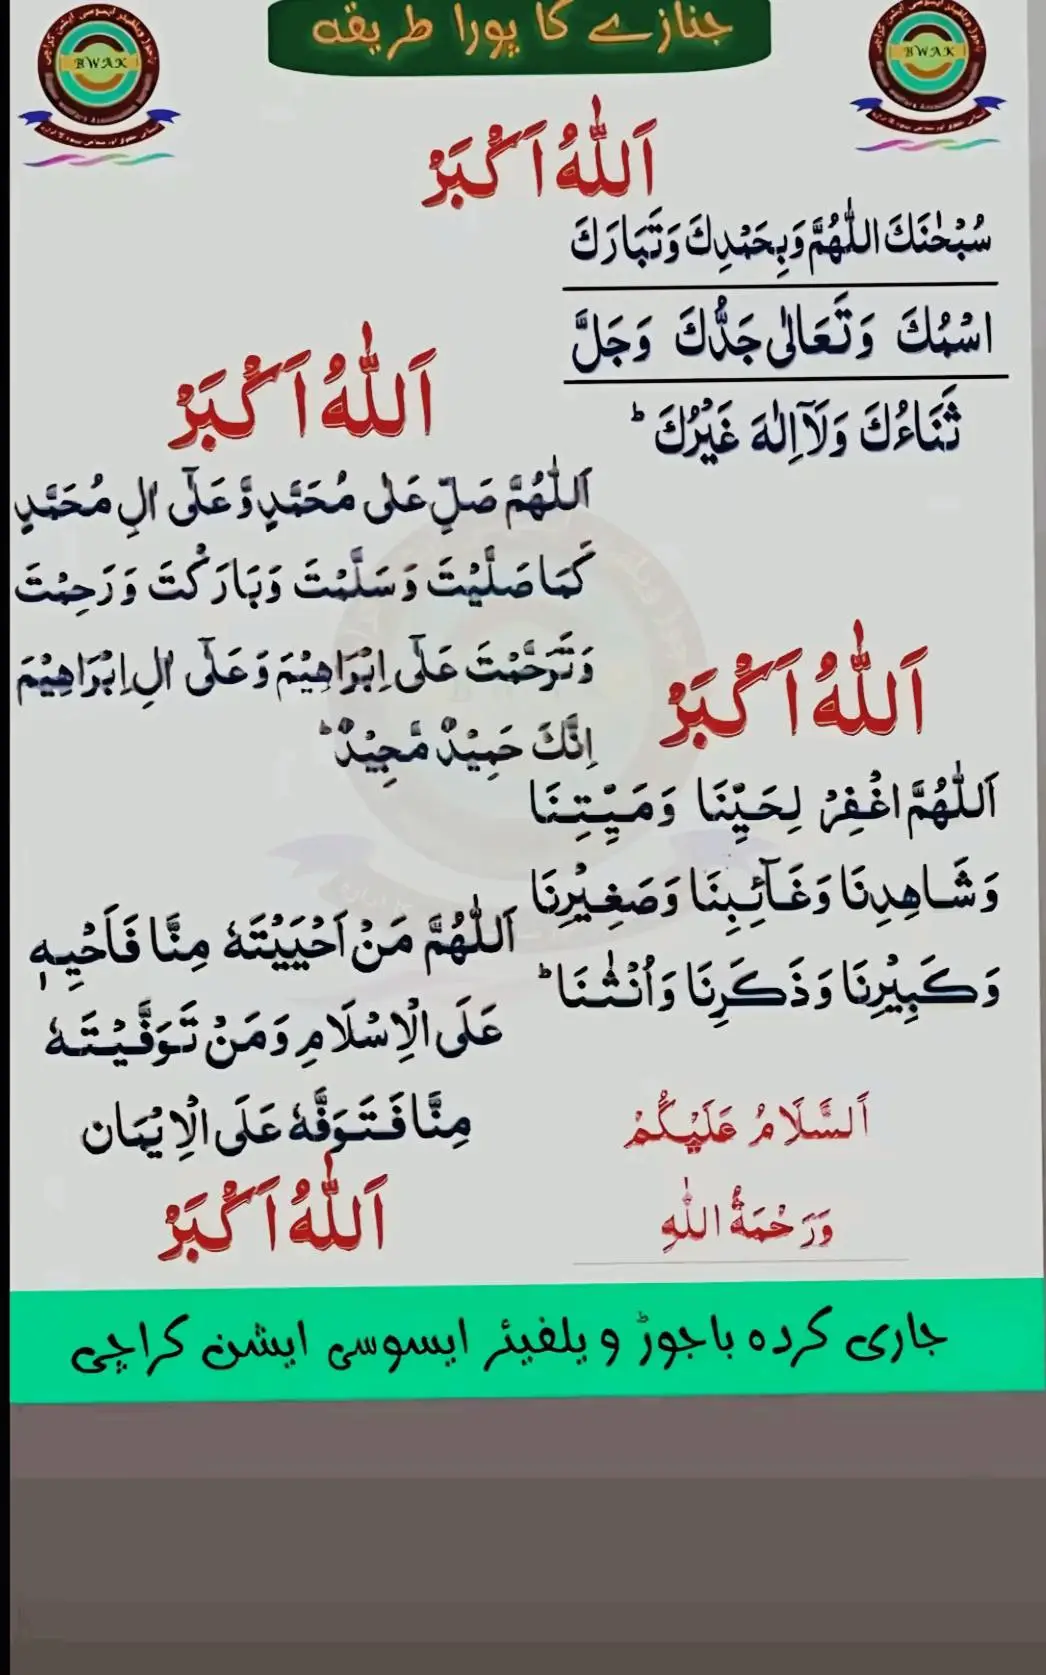 جنازے کا پورا طریقہ
BWAK
BWAK
اَللّٰهُ اَكْبَرْ
سُبْحٰنَكَ اللّٰهُمَّ وَبِحَمْدِكَ وَتَبَارَكَ
اسْمُكَ وَتَعَالٰى جَدُّكَ وَجَلَّ
ثَنَاءُكَ وَلَآ اِلٰهَ غَيْرُكَ ؕ
اَللّٰهُ اَكْبَرْ
اَللّٰهُمَّ صَلِّ عَلٰى مُحَمَّدٍ وَّعَلٰٓى اٰلِ مُحَمَّدٍ
كَمَا صَلَّيْتَ وَسَلَّمْتَ وَبَارَكْتَ وَرَحِمْتَ
وَتَرَحَّمْتَ عَلٰٓى اِبْرَاهِيْمَ وَعَلٰٓى اٰلِ اِبْرَاهِيْمَ
اِنَّكَ حَمِيْدٌ مَّجِيْدٌ ؕ
اَللّٰهُ اَكْبَرْ
اَللّٰهُمَّ اغْفِرْ لِحَيِّنَا وَمَيِّتِنَا
وَشَاهِدِنَا وَغَآئِبِنَا وَصَغِيْرِنَا
وَكَبِيْرِنَا وَذَكَرِنَا وَاُنْثٰنَا ؕ
اَللّٰهُمَّ مَنْ اَحْيَيْتَهٗ مِنَّا فَاَحْيِهٖ
عَلَى الْاِسْلَامِ وَمَنْ تَوَفَّيْتَهٗ
مِنَّا فَتَوَفَّهٗ عَلَى الْاِيْمَان
اَللّٰهُ اَكْبَرْ
اَلسَّلَامُ عَلَيْكُمْ
وَرَحْمَةُ اللّٰهِ
جاری کردہ باجوڑ ویلفیئر ایسوسی ایشن کراچی